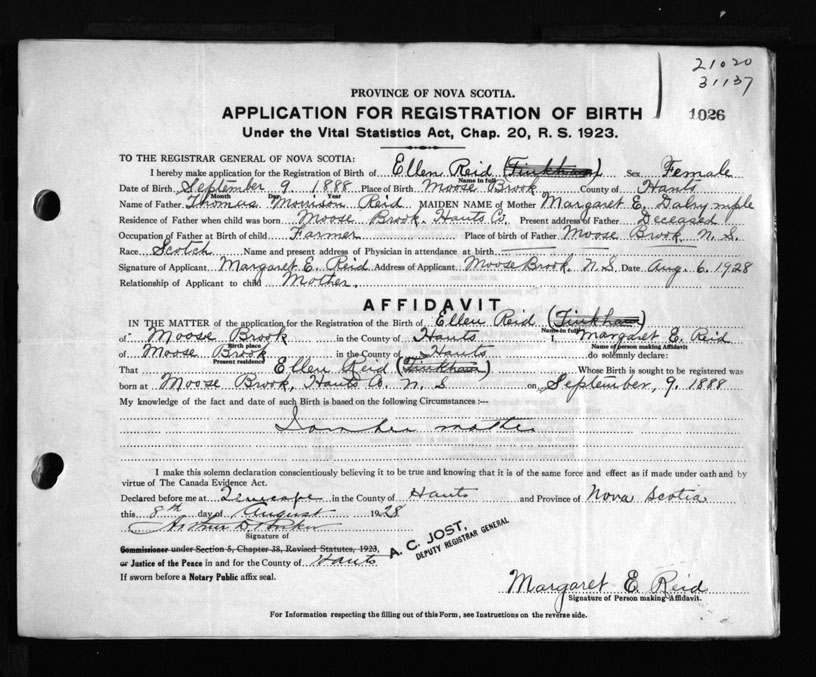 21020
31137
PROVINCE OF NOVA SCOTIA.
1026
APPLICATION FOR REGISTRATION OF BIRTH
Under the Vital Statistics Act, Chap. 20, R. S. 1923.
TO THE REGISTRAR GENERAL OF NOVA SCOTIA:
I hereby make application for the Registration of Birth of Ellen Reid (Tinkham) Sex Female
Name in full
Date of Birth September 9 1888 Place of Birth Moose Brook County of Hants
Month Day Year
Name of Father Thomas Morrison Reid MAIDEN NAME of Mother Margaret E. Dalrymple
Residence of Father when child was born Moose Brook. Hants Co. Present address of Father Deceased
Occupation of Father at Birth of child Farmer Place of birth of Father Moose Brook N. S.
Race Scotch Name and present address of Physician in attendance at birth
Signature of Applicant Margaret E. Reid Address of Applicant Moose Brook. N. S. Date Aug. 6. 1928
Relationship of Applicant to child Mother.
AFFIDAVIT
IN THE MATTER of the application for the Registration of the Birth of Ellen Reid (Tinkham)
Name in full
of Moose Brook in the County of Hants I, Margaret E. Reid
Birth place Name of person making Affidavit
of Moose Brook in the County of Hants do solemnly declare:
Present residence
That Ellen Reid (Tinkham) Whose Birth is sought to be registered was
born at Moose Brook, Hants Co. N. S on September, 9. 1888
My knowledge of the fact and date of such Birth is based on the following Circumstances :—
I am her mother
I make this solemn declaration conscientiously believing it to be true and knowing that it is of the same force and effect as if made under oath and by
virtue of The Canada Evidence Act.
Declared before me at Tenecape in the County of Hants and Province of Nova Scotia
this 8th day of August 1928
Arthur D
Signature of
Commissioner under Section 5, Chapter 38, Revised Statutes, 1923,
or Justice of the Peace in and for the County of Hants
If sworn before a Notary Public affix seal.
A. C. JOST,
DEPUTY REGISTRAR GENERAL
Margaret E. Reid
Signature of Person making Affidavit.
For Information respecting the filling out of this Form, see Instructions on the reverse side.